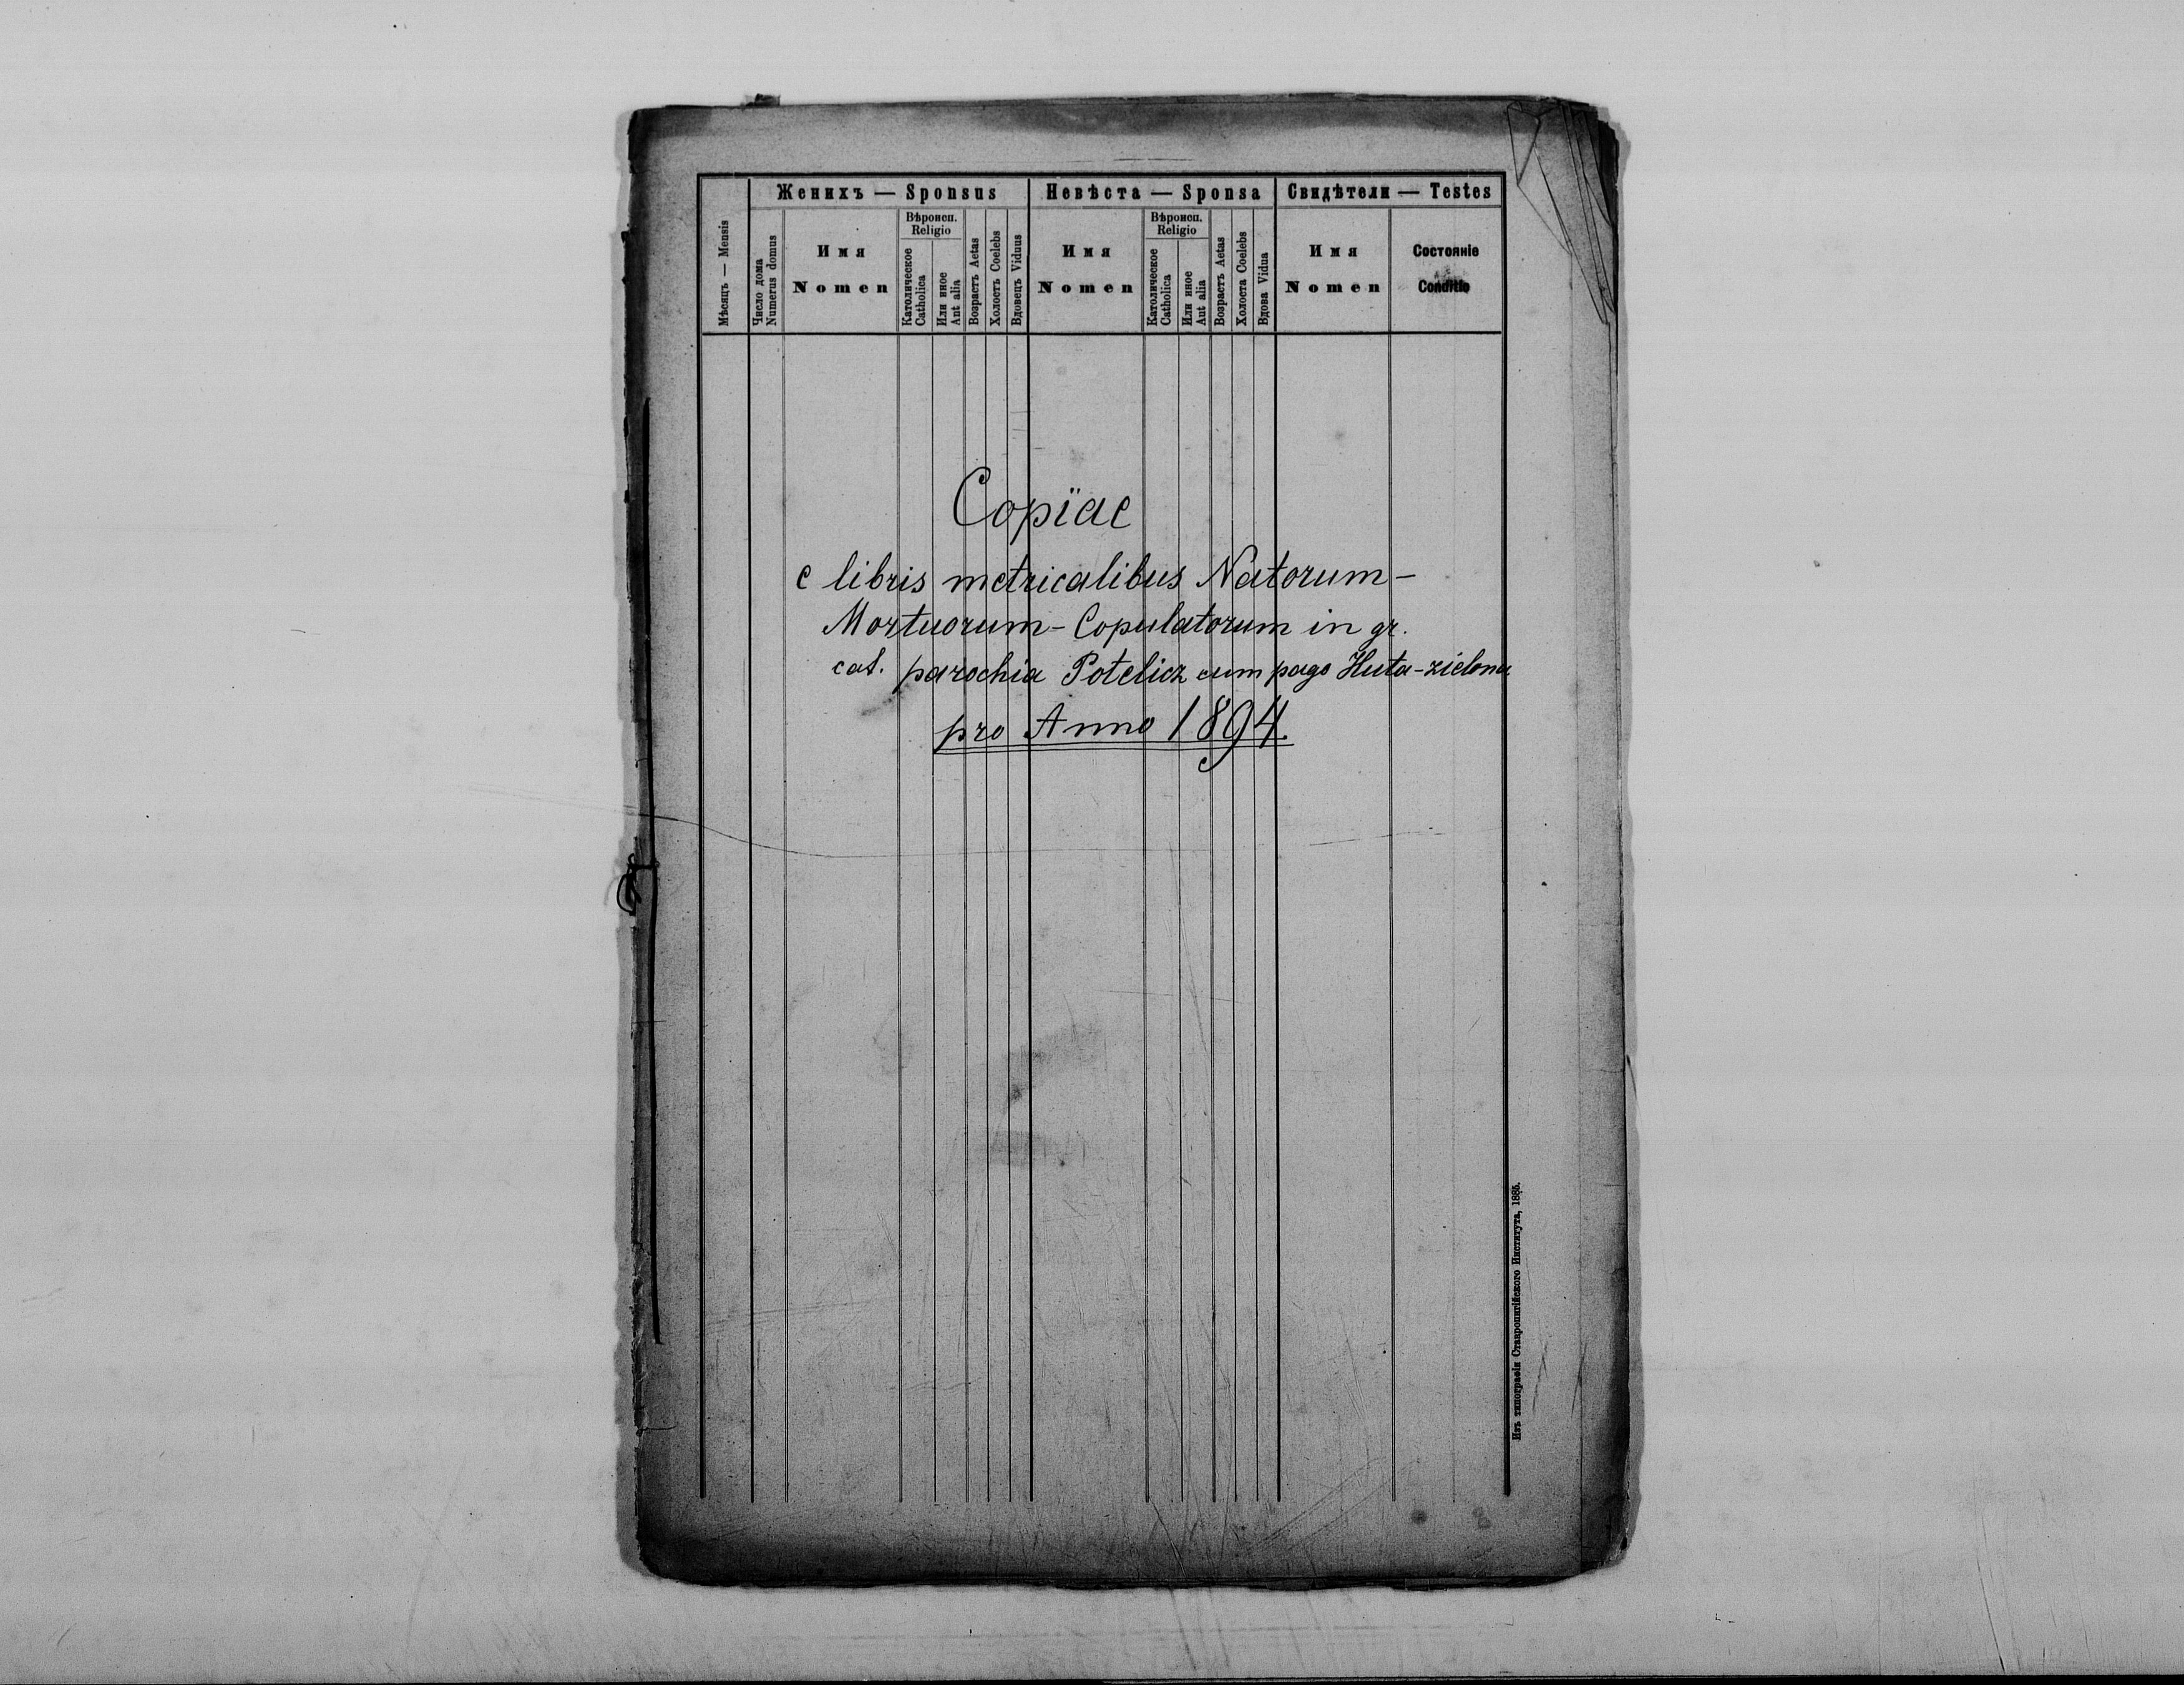 Женихъ — Sponsus
Невѣста — Sponsa
Свидѣтели — Testes
Мѣсяцъ — Mensis
Число дома
Numerus domus
Имя
Nomen
Вѣроисп.
Religio
Католическое
Catholica
Или иное
Aut alia
Возрастъ Aetas
Холостъ Coelebs
Вдовецъ Viduus
Имя
Nomen
Вѣроисп.
Religio
Католическое
Catholica
Или иное
Aut alia
Возрастъ Aetas
Холоста Coelebs
Вдова Vidua
Имя
Nomen
Состояніе
Conditio
Copïae
e libris metricalibus Natorum-
Mortuorum-Copulatorum in gr.
cat. parochia Potelicz cum pago Huta-zielona
pro Anno 1894.
Изъ типографіи Ставропигійского Института, 1885.